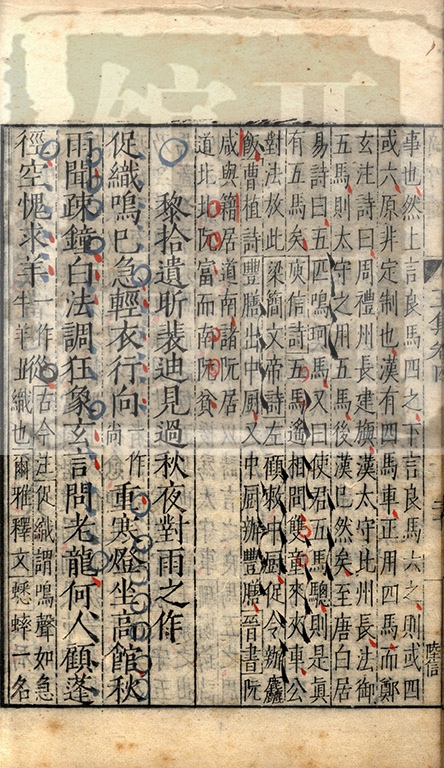 事也然上言良馬四之下言良馬六之則或四
或六原非定制也漢有四馬車正用四馬而鄭
玄注詩曰周禮州長建旟漢太守比州長法御
五馬則太守之用五馬後漢已然矣至唐白居
易詩曰五匹鳴珂馬又曰使君五馬驄則是眞
有五馬矣庾信詩五馬遥相問雙童來夾車公
對法故此梁簡文帝詩左顧敕中厨促令辦麤
飯曹植詩豐膳出中厨又中厨辦豐膳晉書阮
咸與籍居道南諸阮居
道北北阮富而南阮貧
黎拾遺昕裴迪見過秋夜對雨之作
促織鳴巴急輕衣行向一作尚重寒燈坐高館秋
雨聞疎鐘白法調狂象玄言問老龍何人顧蓬
徑空愧求羊一作牛羊從古今注促織謂鳴聲如急
織也爾雅釋文蟋蟀一名
陸信